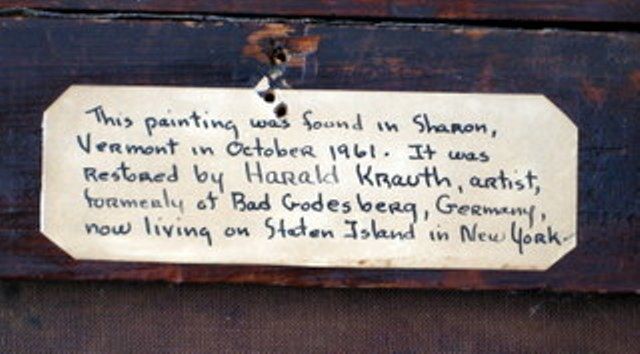 This painting was found in Sharon,
Vermont in October 1961. It was
restored by Harald Krauth, artist,
formerly of Bad Godesberg, Germany,
now living on Staten Island in New York.